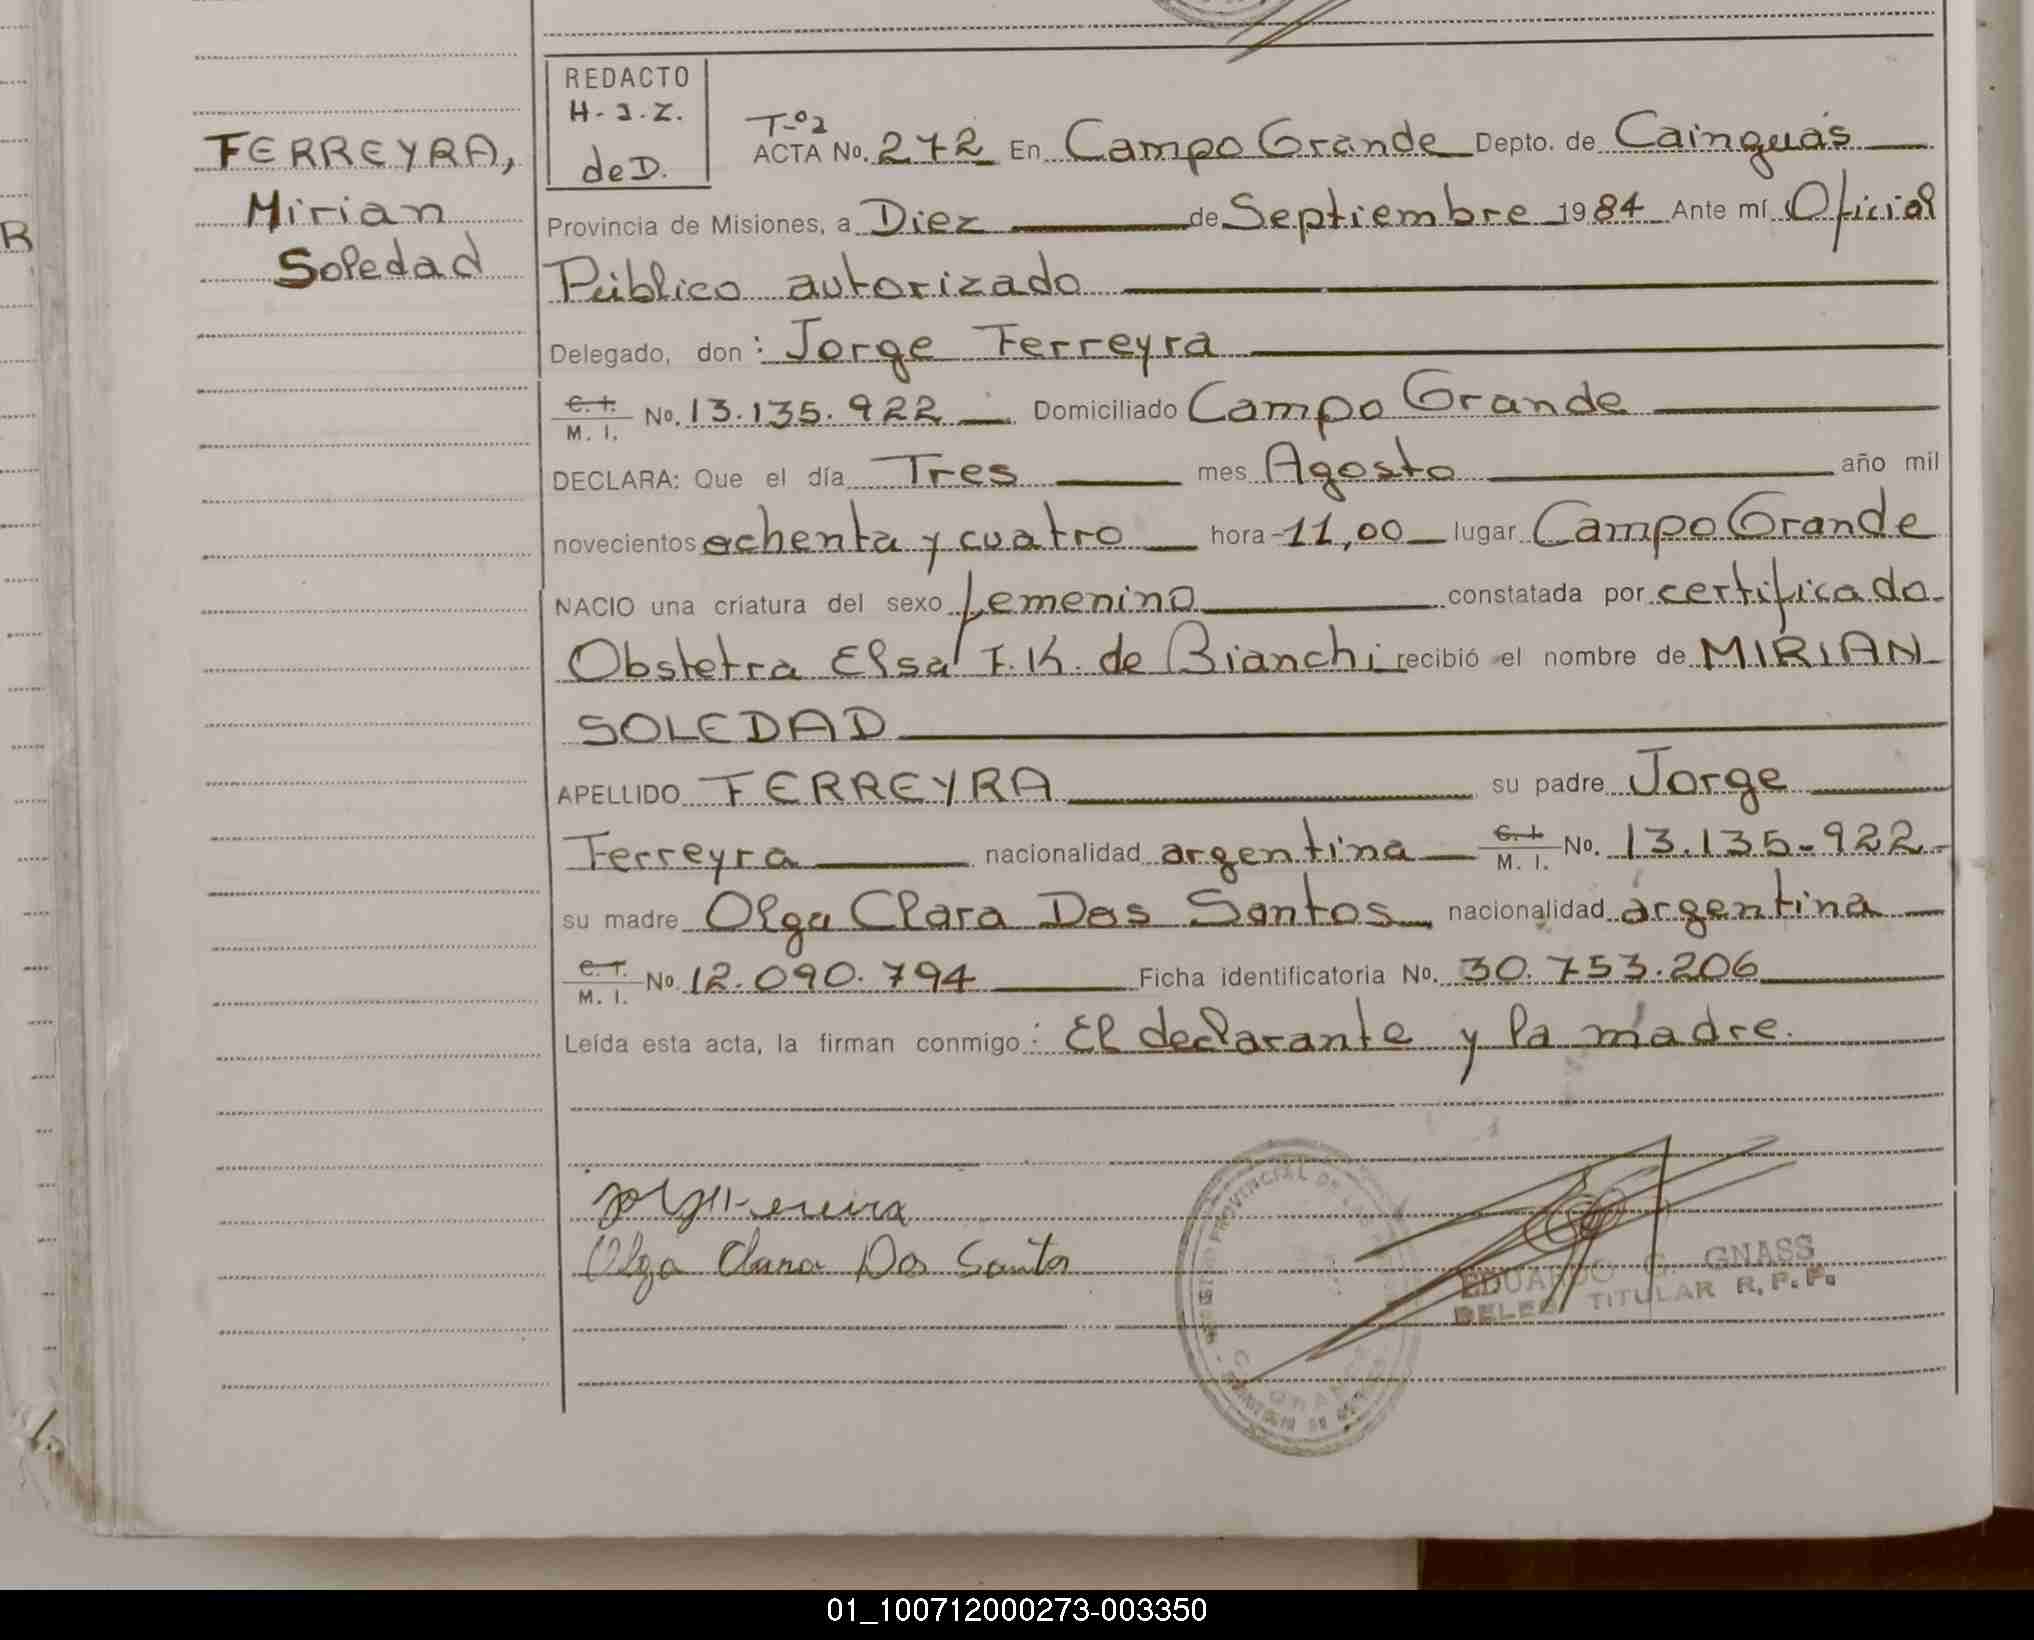 FERREYRA,
Mirian
Soledad
R
REDACTO
H-J-Z.
de D.
T-º2
ACTA No. 272 En Campo Grande Depto. de Cainguás
Provincia de Misiones, a Diez de Septiembre 1984 Ante mí Oficial
Público autorizado
Delegado, don: Jorge Ferreyra
C. I. M. I. No. 13.135.922 Domiciliado Campo Grande
DECLARA: Que el día Tres mes Agosto año mil
novecientos ochenta y cuatro hora 11,00 lugar Campo Grande
NACIO una criatura del sexo femenino constatada por certificado
Obstetra Elsa F. K. de Bianchi recibió el nombre de MIRIAN
SOLEDAD
APELLIDO FERREYRA su padre Jorge
Ferreyra nacionalidad argentina C. I. M. I. No. 13.135-922-
su madre Olga Clara Dos Santos nacionalidad argentina
C. I. M. I. No. 12.090.794 Ficha identificatoria No. 30.753.206
Leída esta acta, la firman conmigo: El declarante y la madre.
Olga Clara Dos Santos
PROVINCIAL DE LAS
EDUARDO G. GNASS
DELEG. TITULAR R.P.P.
01_100712000273-003350